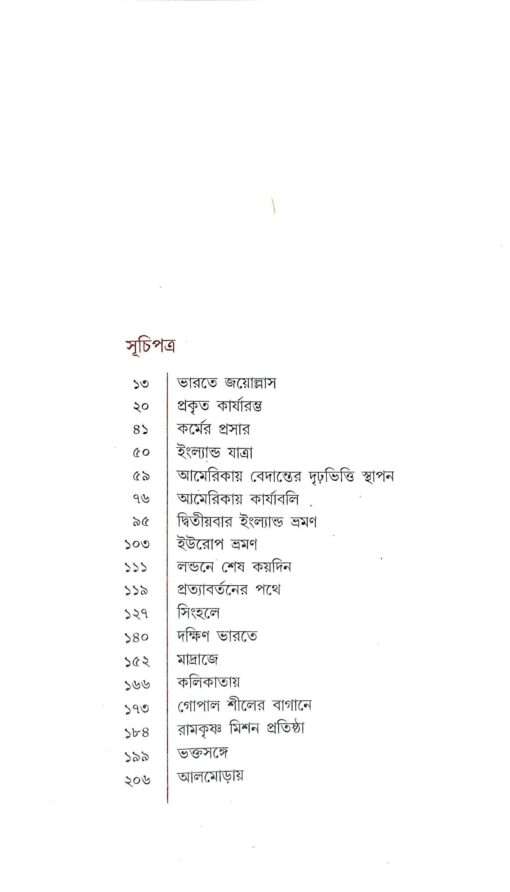 সূচিপত্র
১৩ ভারতে জয়োল্লাস
২০ প্রকৃত কার্যারম্ভ
৪১ কর্মের প্রসার
৫০ ইংল্যান্ড যাত্রা
৫৯ আমেরিকায় বেদান্তের দৃঢ়ভিত্তি স্থাপন
৭৬ আমেরিকায় কার্যাবলি
৯৫ দ্বিতীয়বার ইংল্যান্ড ভ্রমণ
১০৩ ইউরোপ ভ্রমণ
১১১ লন্ডনে শেষ কয়দিন
১১৯ প্রত্যাবর্তনের পথে
১২৭ সিংহলে
১৪০ দক্ষিণ ভারতে
১৫২ মাদ্রাজে
১৬৬ কলিকাতায়
১৭৩ গোপাল শীলের বাগানে
১৮৪ রামকৃষ্ণ মিশন প্রতিষ্ঠা
১৯৯ ভক্তসঙ্গে
২০৬ আলমোড়ায়